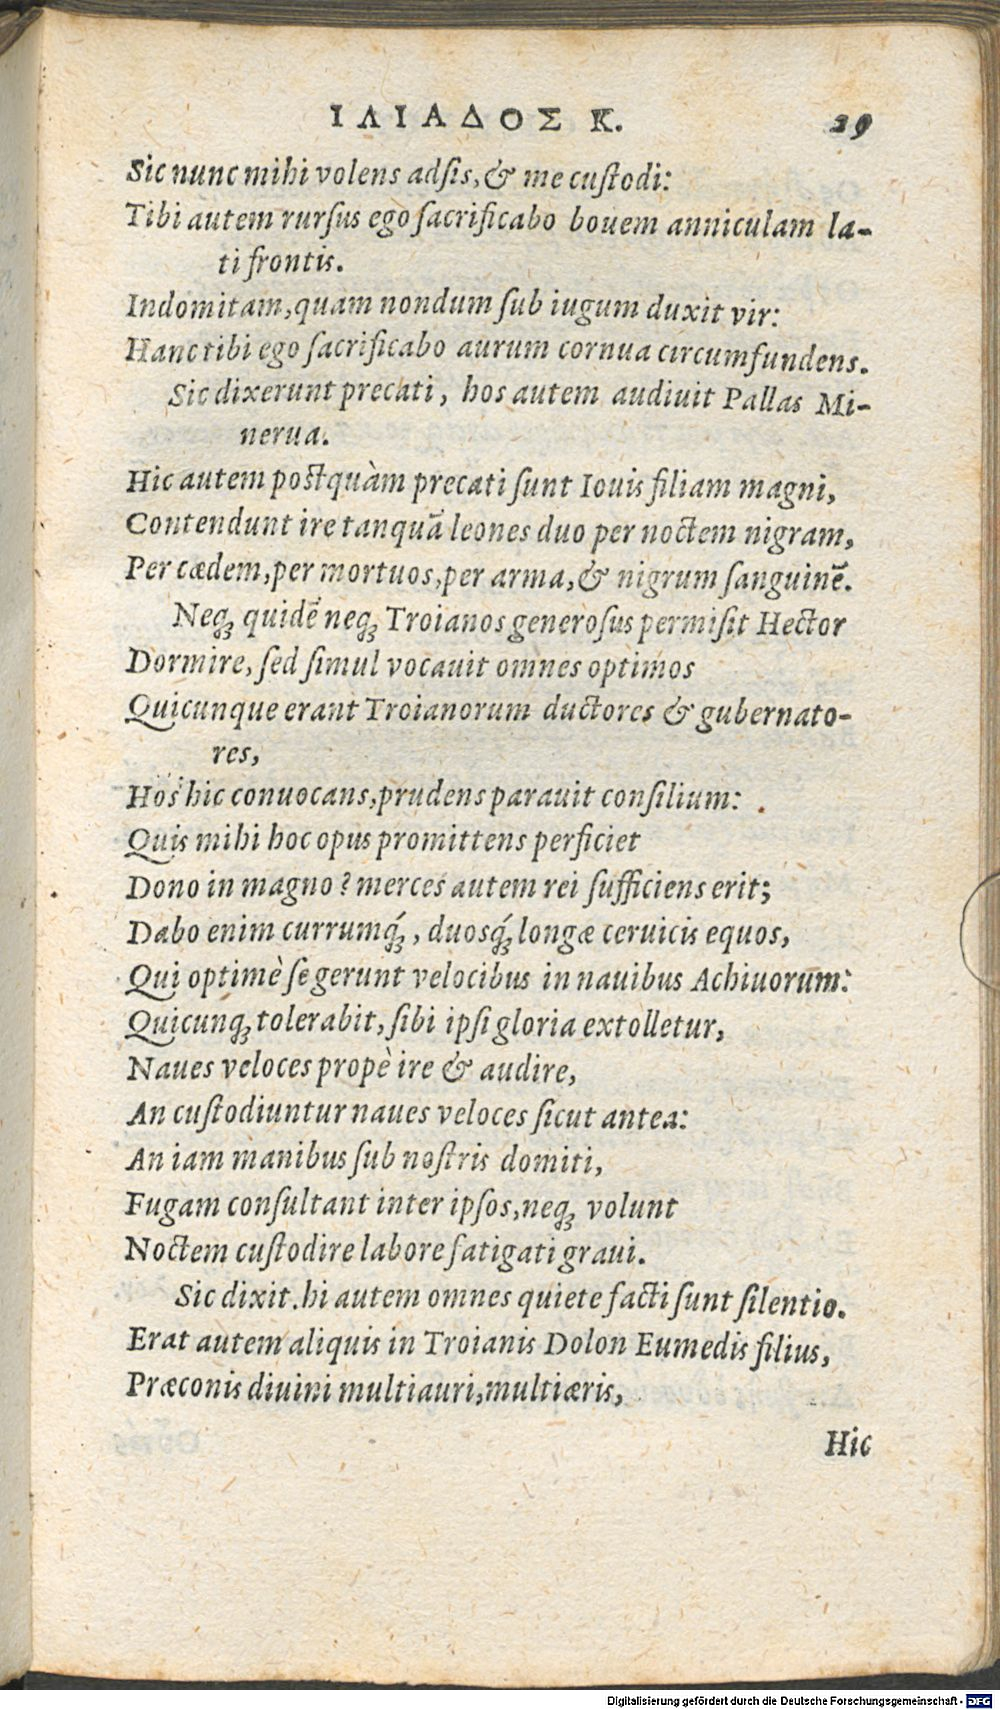 ΙΛΙΑΔΟΣ Κ. 29
Sic nunc mihi volens adſis, & me cuſtodi:
Tibi autem rurſus ego ſacrificabo bouem anniculam la-
ti frontis.
Indomitam, quam nondum ſub iugum duxit vir:
Hanc tibi ego ſacrificabo aurum cornua circumfundens.
Sic dixerunt precati, hos autem audiuit Pallas Mi-
nerua.
Hic autem poſtquàm precati ſunt Iouis filiam magni,
Contendunt ire tanquã leones duo per noctem nigram,
Per cædem, per mortuos, per arma, & nigrum ſanguinẽ.
Neqꝫ quidẽ neqꝫ Troianos generoſus permiſit Hector
Dormire, ſed ſimul vocauit omnes optimos
Quicunque erant Troianorum ductores & gubernato-
res,
Hos hic conuocans, prudens parauit conſilium:
Quis mihi hoc opus promittens perficiet
Dono in magno? merces autem rei ſufficiens erit;
Dabo enim currumq́ꝫ, duosq́ꝫ longæ ceruicis equos,
Qui optimè ſe gerunt velocibus in nauibus Achiuorum:
Quicunqꝫ tolerabit, ſibi ipſi gloria extolletur,
Naues veloces propè ire & audire,
An cuſtodiuntur naues veloces ſicut antea:
An iam manibus ſub noſtris domiti,
Fugam conſultant inter ipſos, neqꝫ volunt
Noctem cuſtodire labore fatigati graui.
Sic dixit. hi autem omnes quiete facti ſunt ſilentio.
Erat autem aliquis in Troianis Dolon Eumedis filius,
Præconis diuini multiauri, multiæris,
Hic
Digitalisierung gefördert durch die Deutsche Forschungsgemeinschaft - DFG